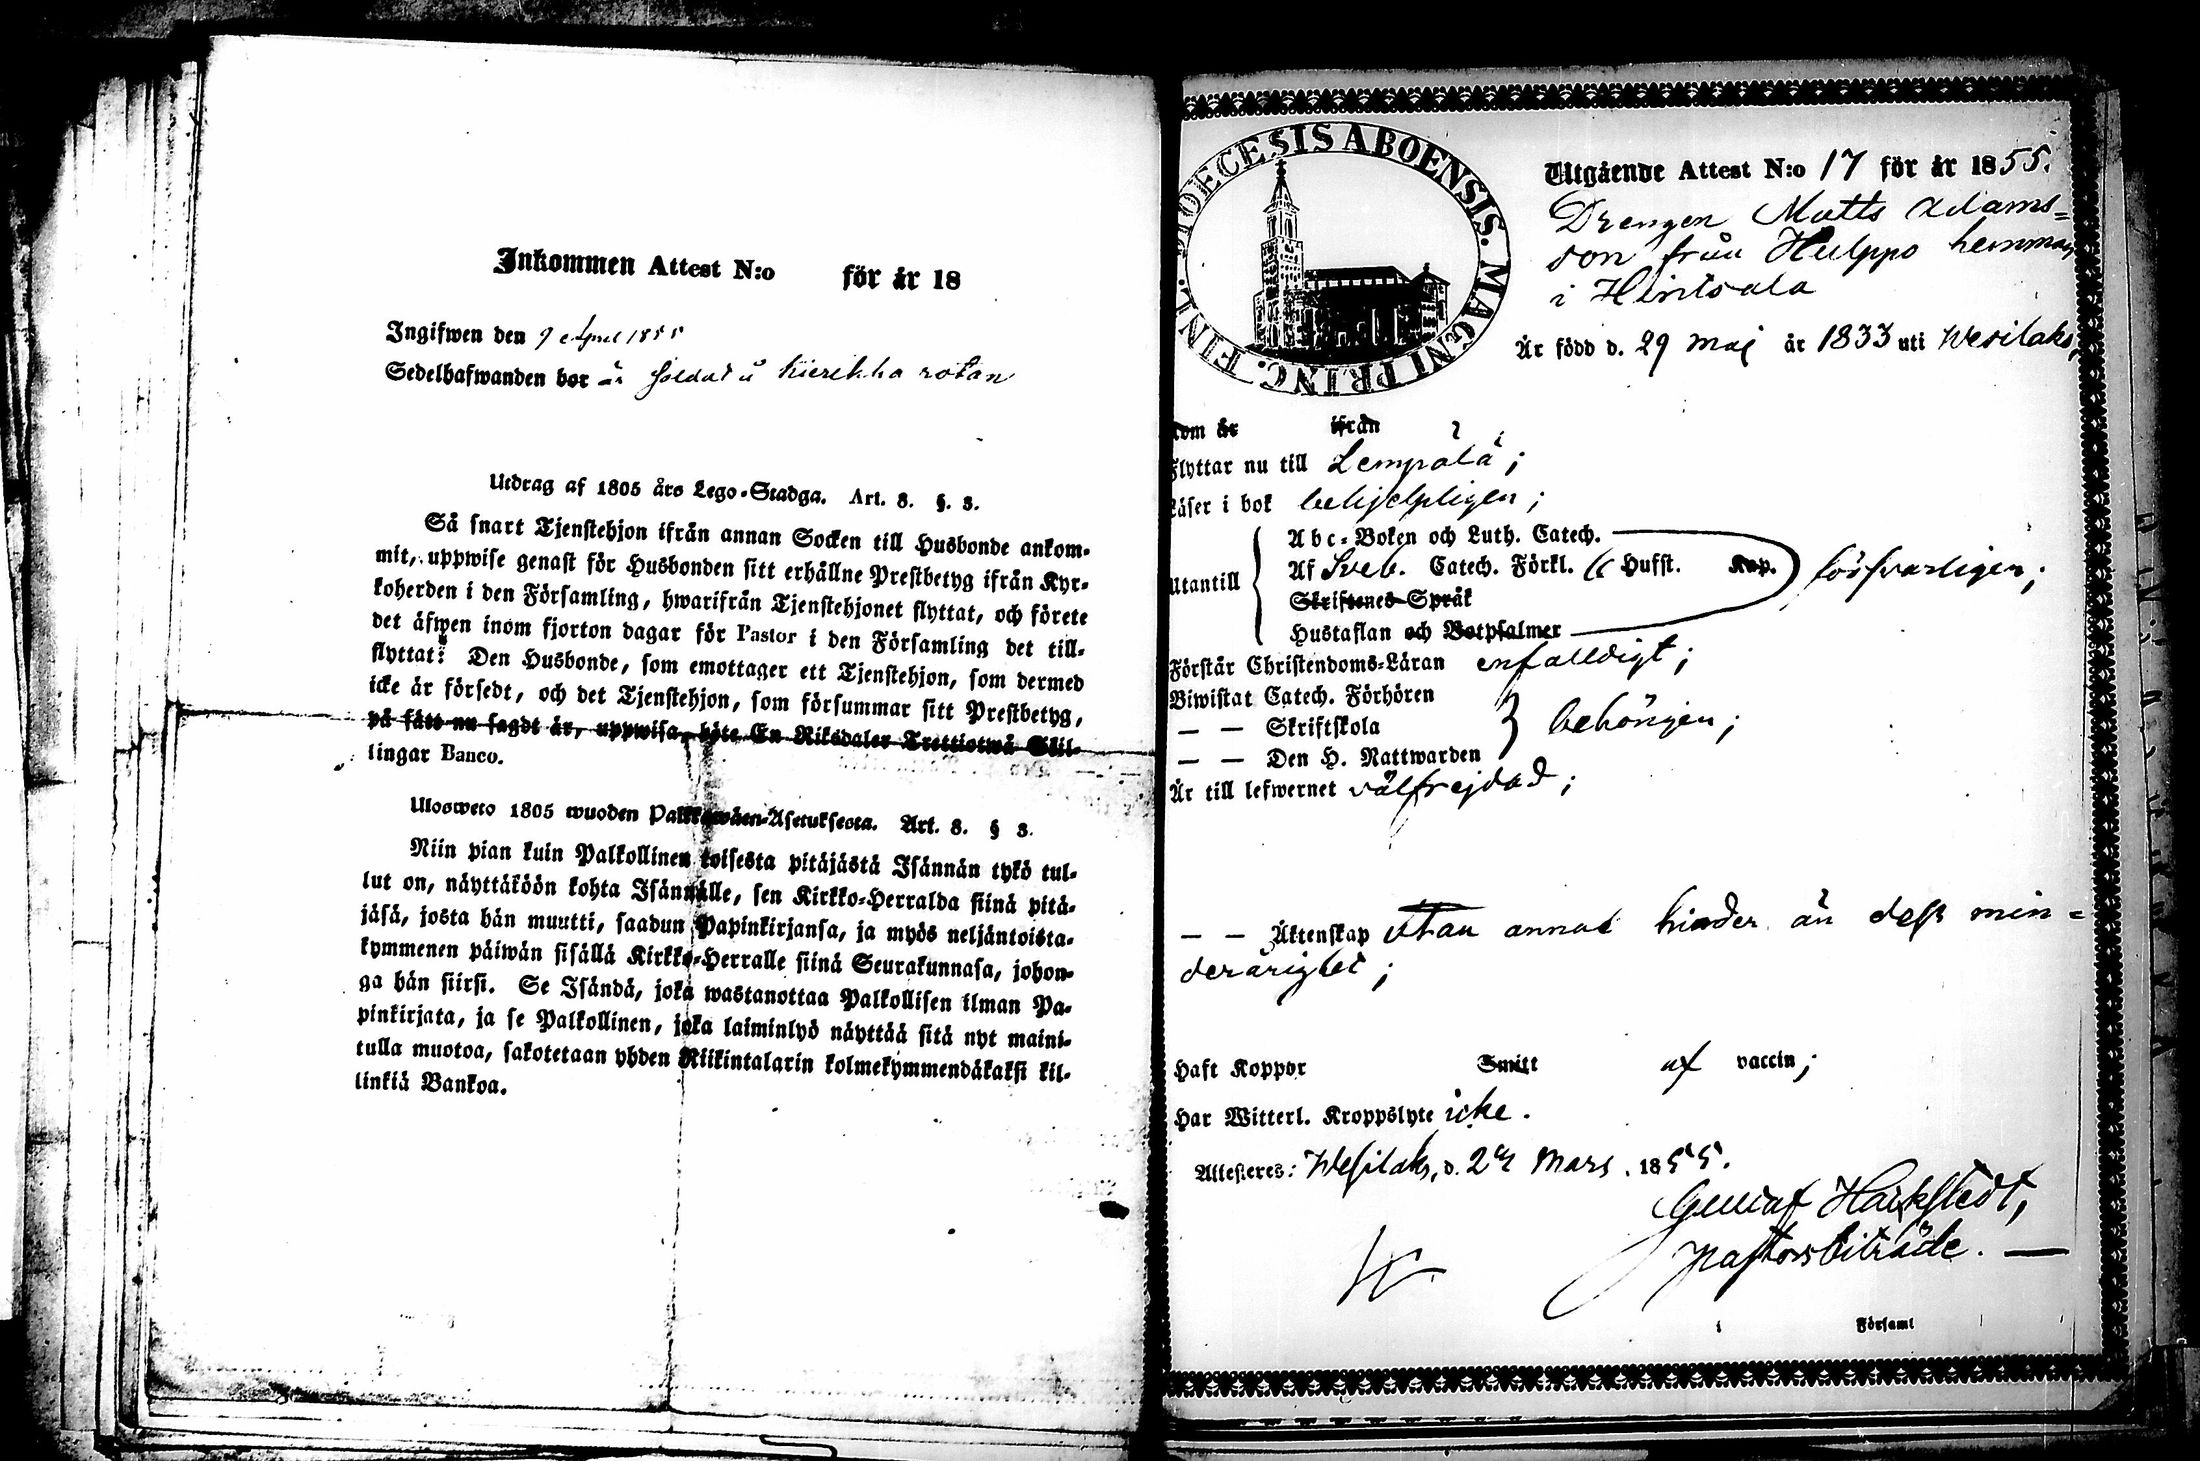 Inkommen Attest N:o för år 18
Ingifwen den 9 April 1855
Sedelhafwanden bor är soldat i Kierikka rotan
Utdrag af 1805 års Lego-Stadga. Art. 8. §. 3.
Så snart Tjenstehjon ifrån annan Socken till Husbonde ankom-
mit, uppwise genast för Husbonden sitt erhållne Prestbetyg ifrån Kyr-
koherden i den Församling, hwarifrån Tjenstehjonet flyttat, och förete
det äfwen inom fjorton dagar för Pastor i den Församling det till-
flyttat: Den Husbonde, som emottager ett Tjenstehjon, som dermed
icke är försedt, och det Tjenstehjon, som försummar sitt Prestbetyg,
på sätt nu sagdt är, uppwisa, böte En Riksdaler Trettiotwå Skil-
lingar Banco.
Ulosweto 1805 wuoden Palkkawäen-Asetuksesta. Art. 8. § 3.
Niin pian kuin Palkollinen toisesta pitäjästä Isännän tykö tul-
lut on, näyttäköön kohta Isännälle, sen Kirkko-Herralda siinä pitä-
jäsä, josta hän muutti, saadun Papinkirjansa, ja myös neljäntoista-
kymmenen päiwän sisällä Kirkko-Herralle siinä Seurakunnasa, johon-
ga hän siirsi. Se Isändä, joka wastanottaa Palkollisen ilman Pa-
pinkirjata, ja se Palkollinen, joka laiminlyö näyttää sitä nyt maini-
tulla muotoa, sakotetaan yhden Riikintalarin kolmekymmendäkaksi kil-
linkiä Bankoa.
DIOECESIS ABOENSIS. MAGNI PRINC. FINL.
Utgående Attest N:o 17 för år 1855.
Drengen Matts Adams=
son från Hulppo hemman
i Hintsala
Är född d. 29 Maj år 1833 uti Wesilaks,
kom år ifrån
Flyttar nu till Lempälä;
Läser i bok behjelpligen;
Utantill
Abc-Boken och Luth. Catech.
Af Sveb. Catech. Förkl. Hufst. Kap. försvarligen;
Skriftenes Språk
Hustaflan och Botpsalmer
Förstår Christendoms-Läran enfalldigt;
Biwistat Catech. Förhören
— — Skriftskola behörigen;
— — Den H. Nattwarden
Är till lefwernet välfrejdad;
— — Äktenskap utan annat hinder än dess min=
derårighet;
Haft Koppor Smitt af vaccin;
Har Witterl. Kroppslyte icke.
Attesteres: Wesilaks, d. 27 Mars. 1855.
Gustaf Harkstedt,
Pastorsbiträde. —
Församl